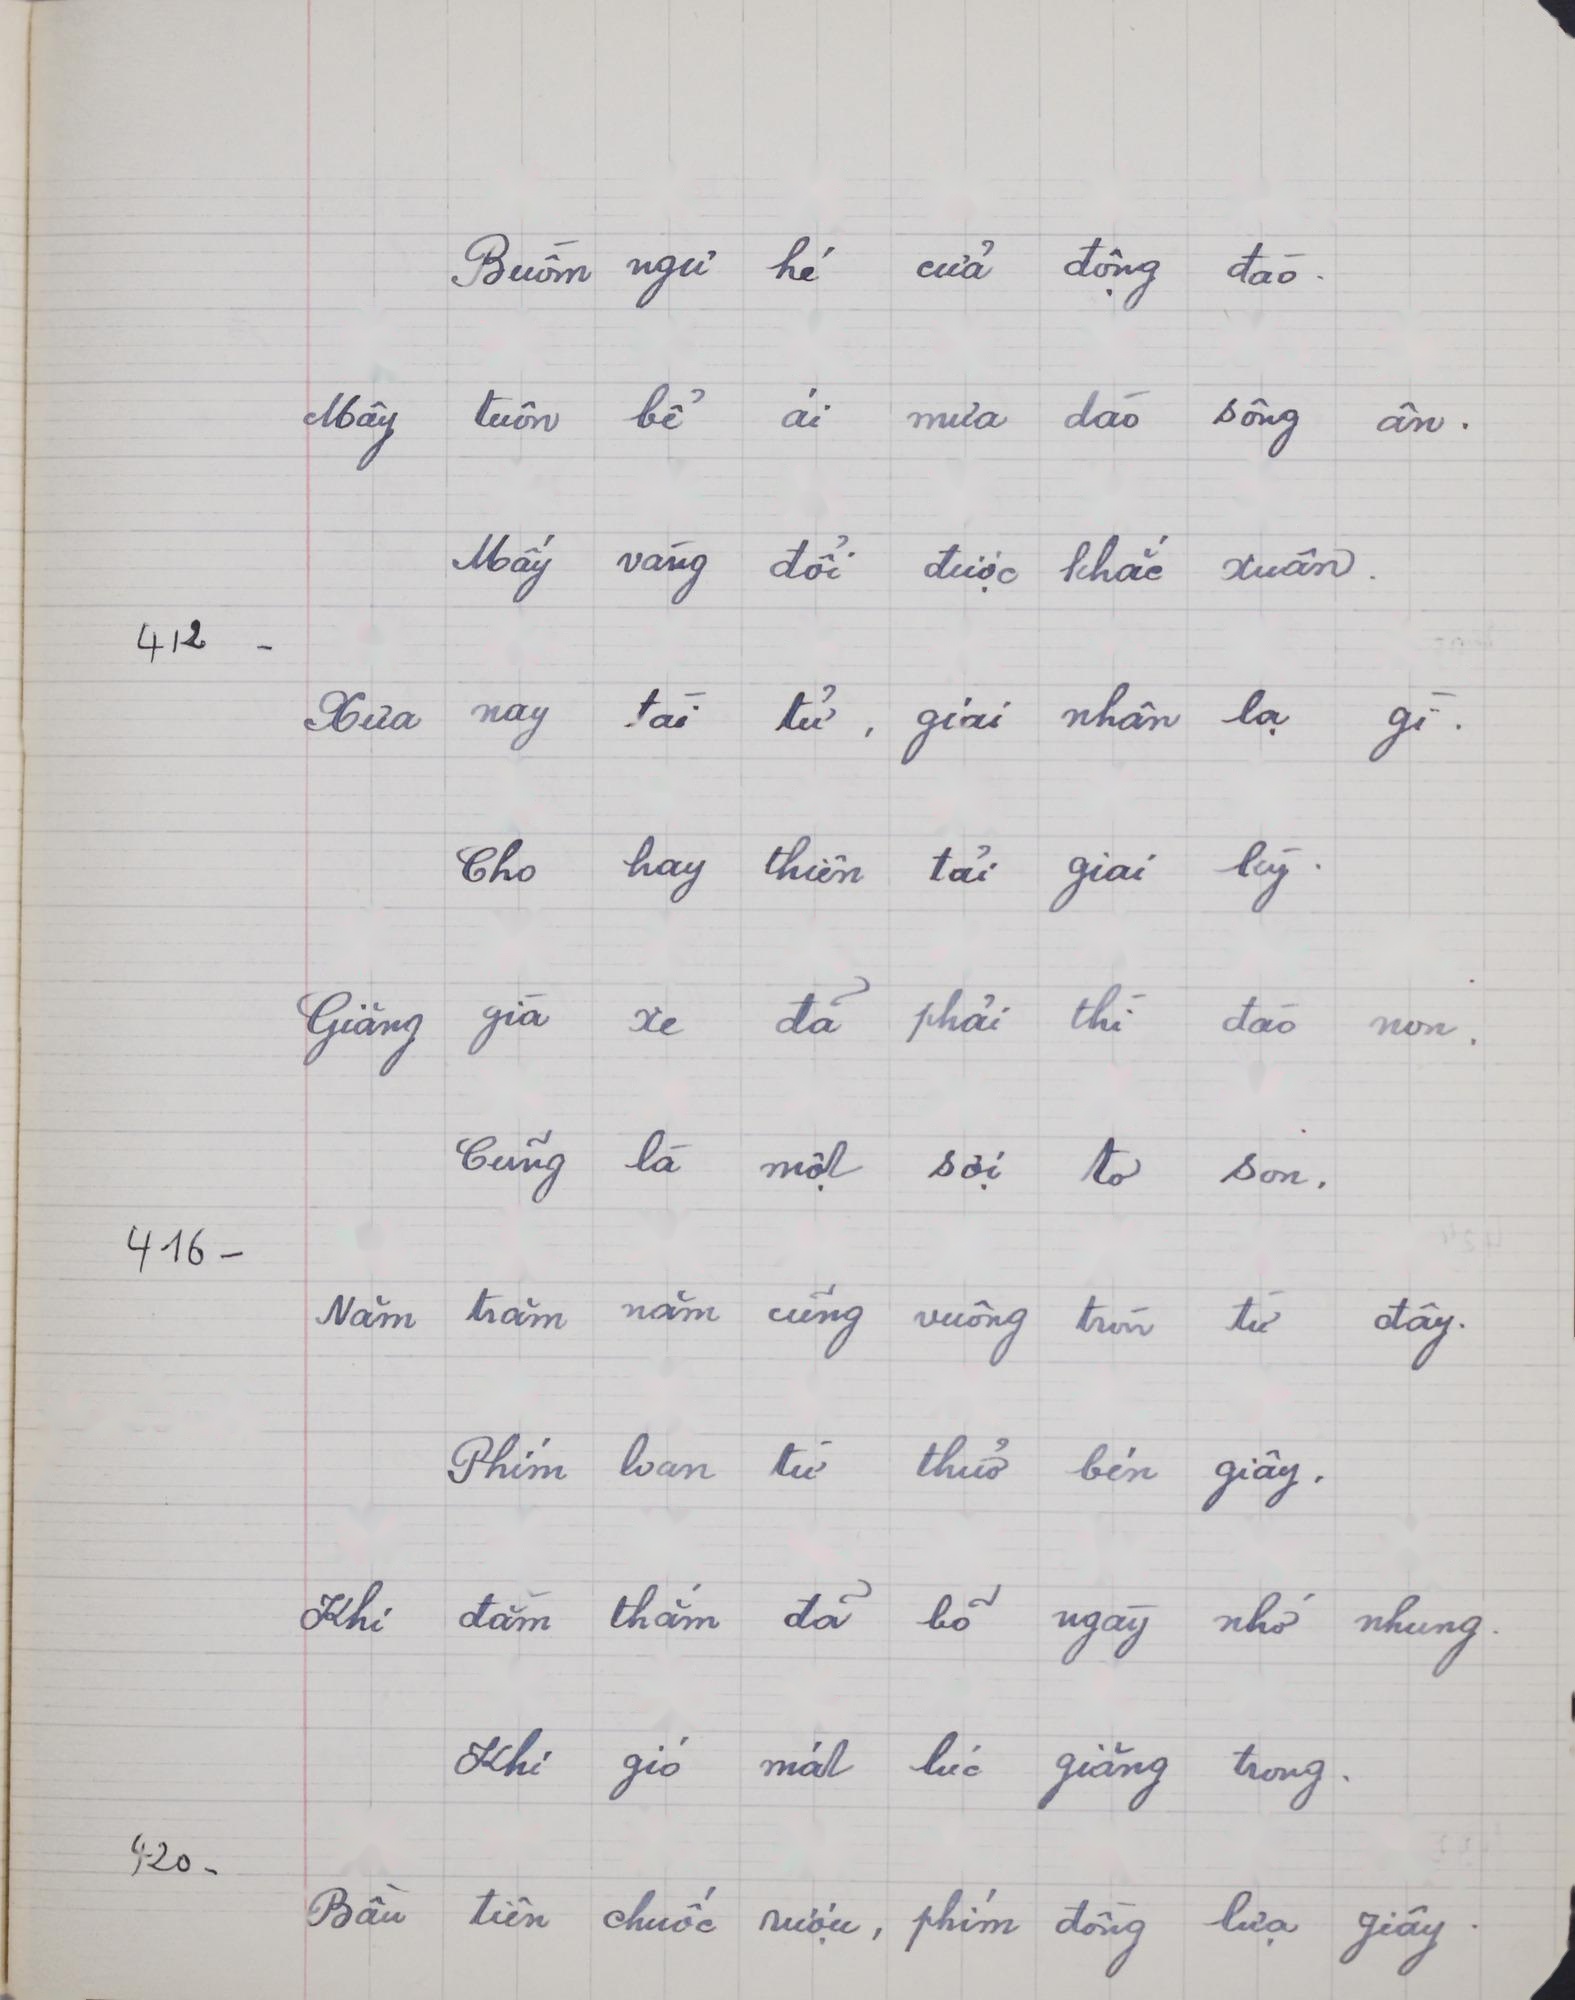 Buồm ngư hé cửa động đào.
Mây tuôn bể ái mưa dào sông ân.
Mấy vàng đổi được khắc xuân.
412 -
Xưa nay tài tử, giai nhân lạ gì.
Cho hay thiên tải giai kỳ.
Giăng già xe đã phải thì đào non.
Cũng là một sợi tơ son.
416 -
Năm trăm năm cũng vuông tròn từ đây.
Phím loan từ thuở bén giây.
Khi đằm thắm đã bõ ngày nhớ nhung.
Khi gió mát lúc giăng trong.
420 -
Bầu tiên chuốc rượu, phím đồng lựa giây.